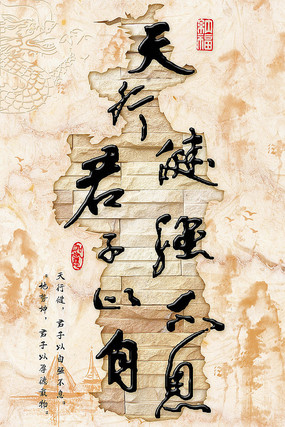 天行健
君子以自
强不息
天行健，君子以自强不息。
地势坤，君子以厚德载物。